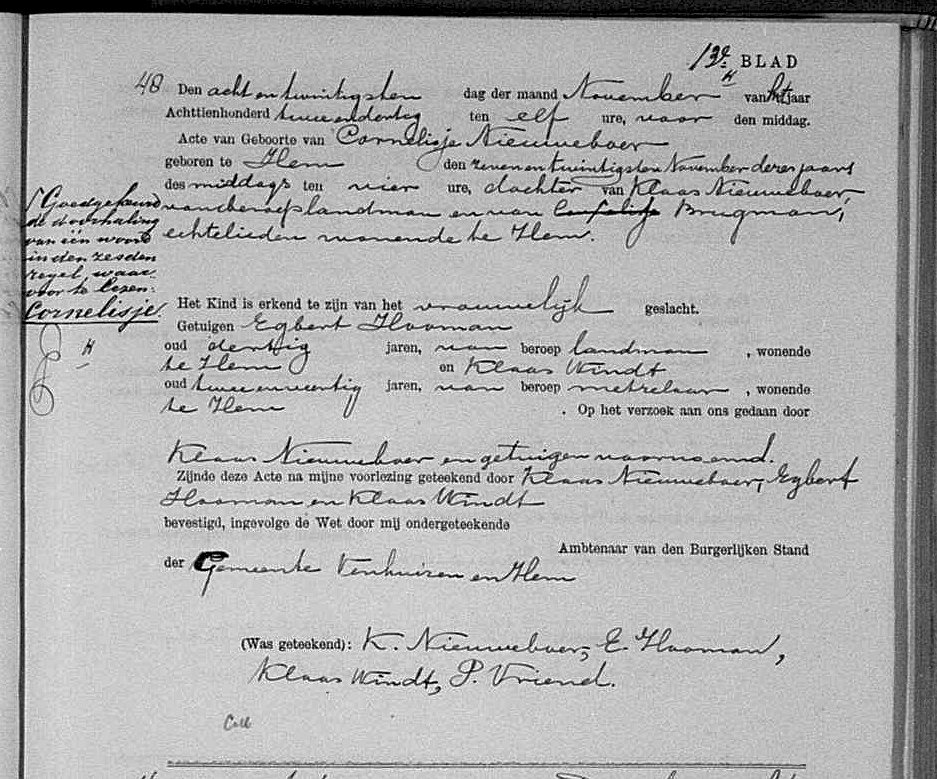 13e BLAD
48 Den acht en twintigsten dag der maand November van het jaar
Achttienhonderd twee en dertig ten elf ure, voor den middag.
Acte van Geboorte van Cornelisje Nieuweboer
geboren te Hem den zeven en twintigsten November dezes jaars
des middags ten vier ure, dochter van Klaas Nieuweboer,
van beroep landman en van Brugman,
echtelieden wonende te Hem.
Goedgekeurd
de doorhaling
van één woord
in den zesden
regel, waar-
voor te lezen:
Cornelisje.
H
Het Kind is erkend te zijn van het vrouwelijk geslacht.
Getuigen Egbert Hooman
oud dertig jaren, van beroep landman , wonende
te Hem en Klaas Windt
oud twee en veertig jaren, van beroep metzelaar , wonende
te Hem . Op het verzoek aan ons gedaan door
Klaas Nieuweboer en getuigen voornoemd.
Zijnde deze Acte na mijne voorlezing geteekend door Klaas Nieuweboer, Egbert
Hooman en Klaas Windt
bevestigd, ingevolge de Wet door mij ondergeteekende
Ambtenaar van den Burgerlijken Stand
der Gemeente Venhuizen en Hem
(Was geteekend): K. Nieuweboer, E. Hooman,
Klaas Windt, P. Vriend.
Coll